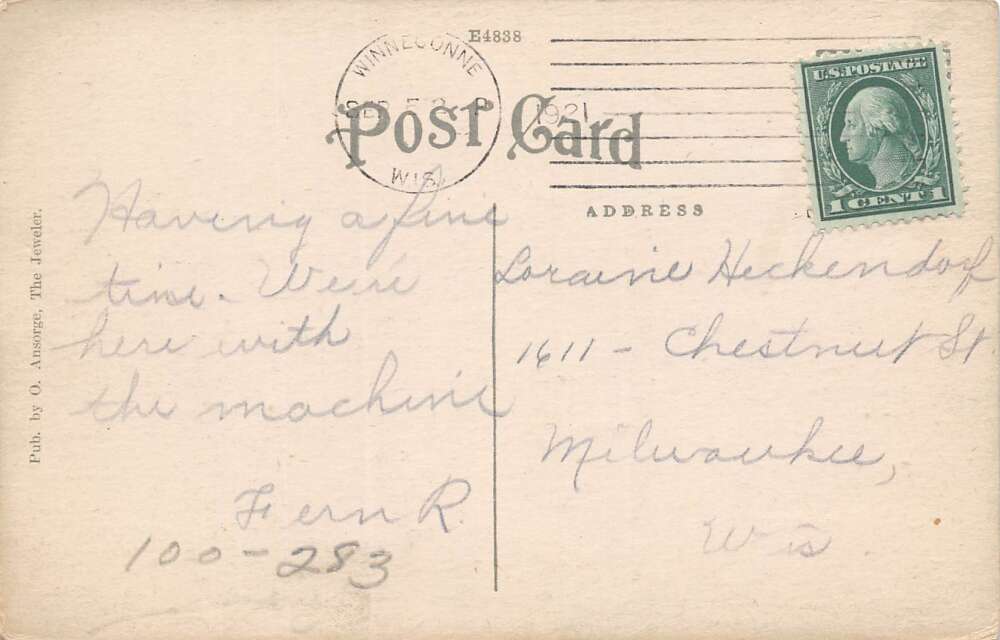 E4838
WINNECONNE
SEP 5 3 P
1921
WIS.
POST CARD
U.S. POSTAGE
1 CENT 1
ADDRESS
Having a fine
time. We're
here with
the machine
Fern R.
100-283
Loraine Heckendorf
1611 - Chestnut St
Milwaukee,
Wis.
Pub. by O. Ansorge, The Jeweler.